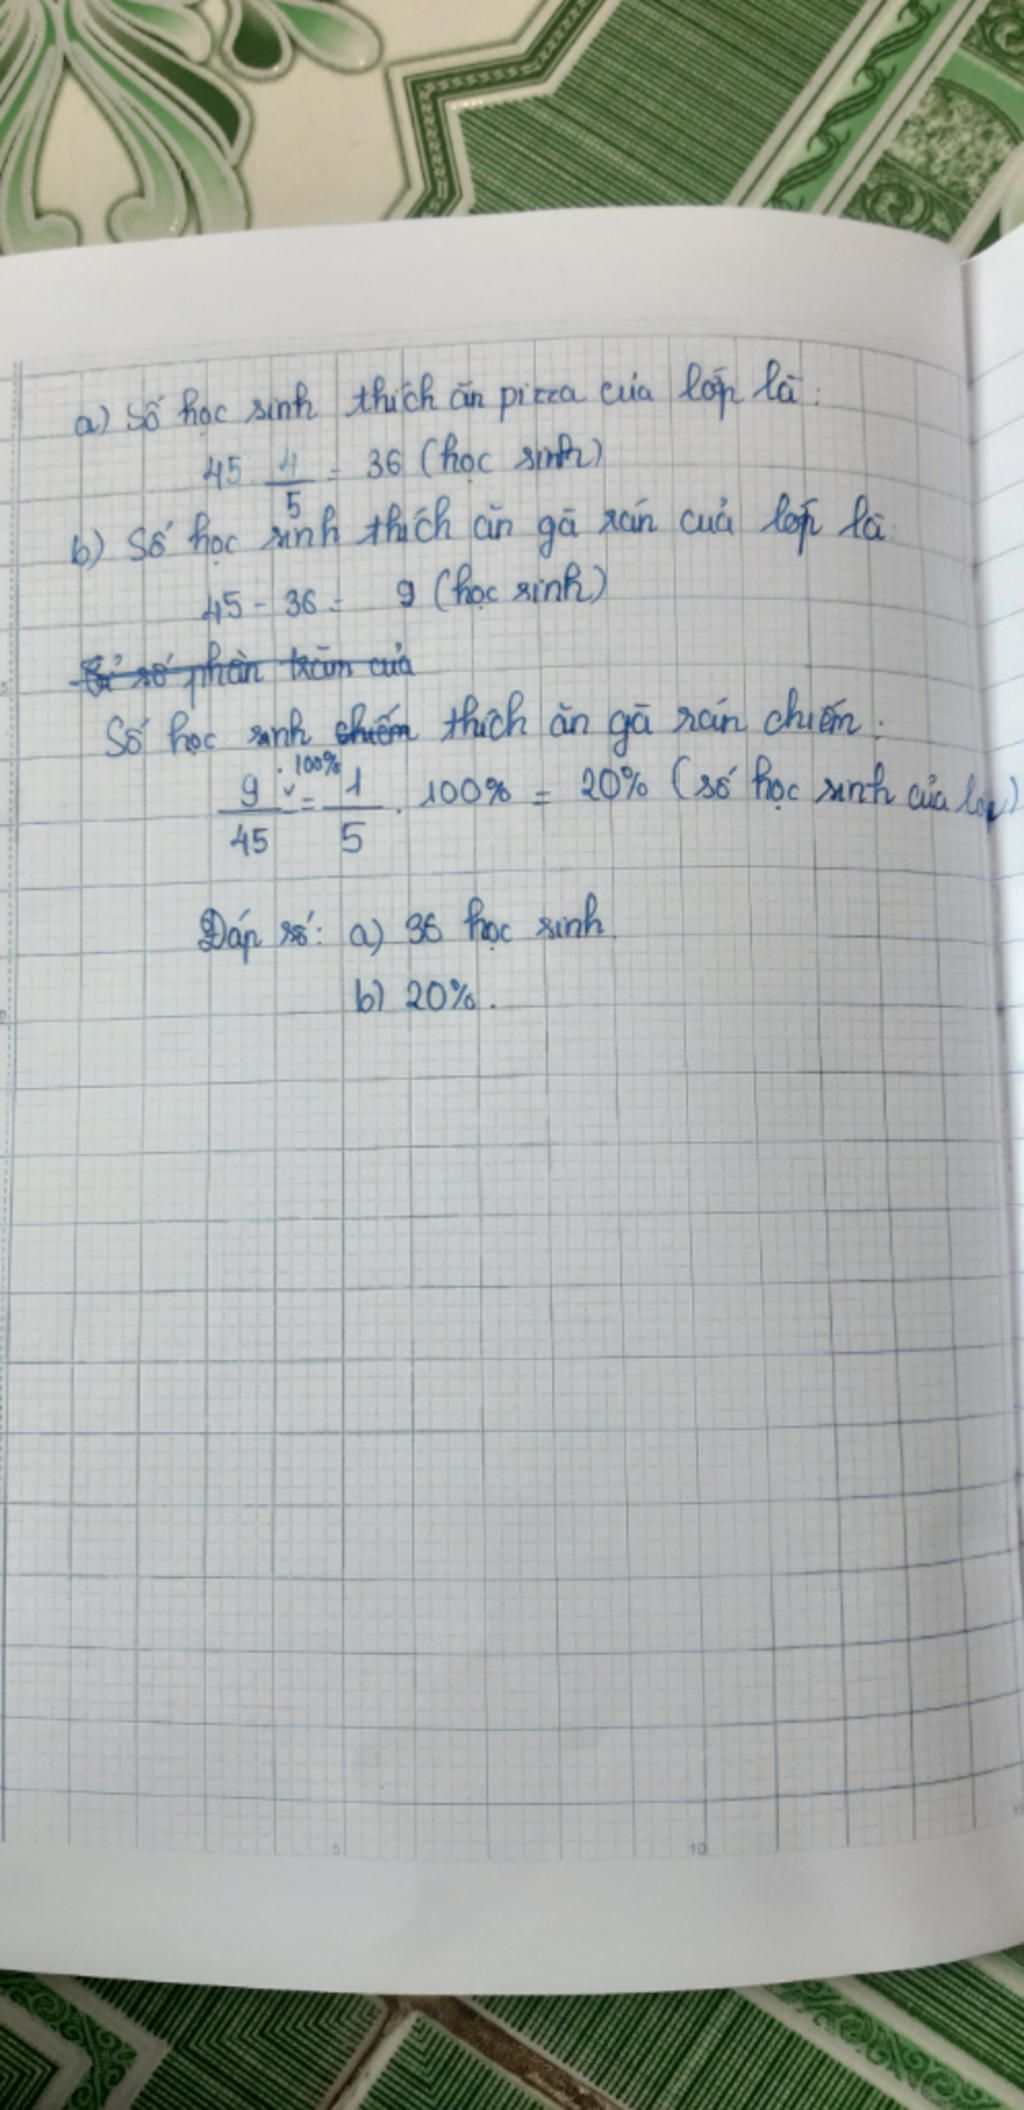 a) Số học sinh thích ăn pizza của lớp là:
45 4/5 = 36 (học sinh)
b) Số học sinh thích ăn gà rán của lớp là:
45 - 36 = 9 (học sinh)
Tỉ số phần trăm của
Số học sinh chiếm thích ăn gà rán chiếm:
9/45 . 100% = 1/5 . 100% = 20% (số học sinh của lớp)
Đáp số: a) 36 học sinh
b) 20%.
5 10